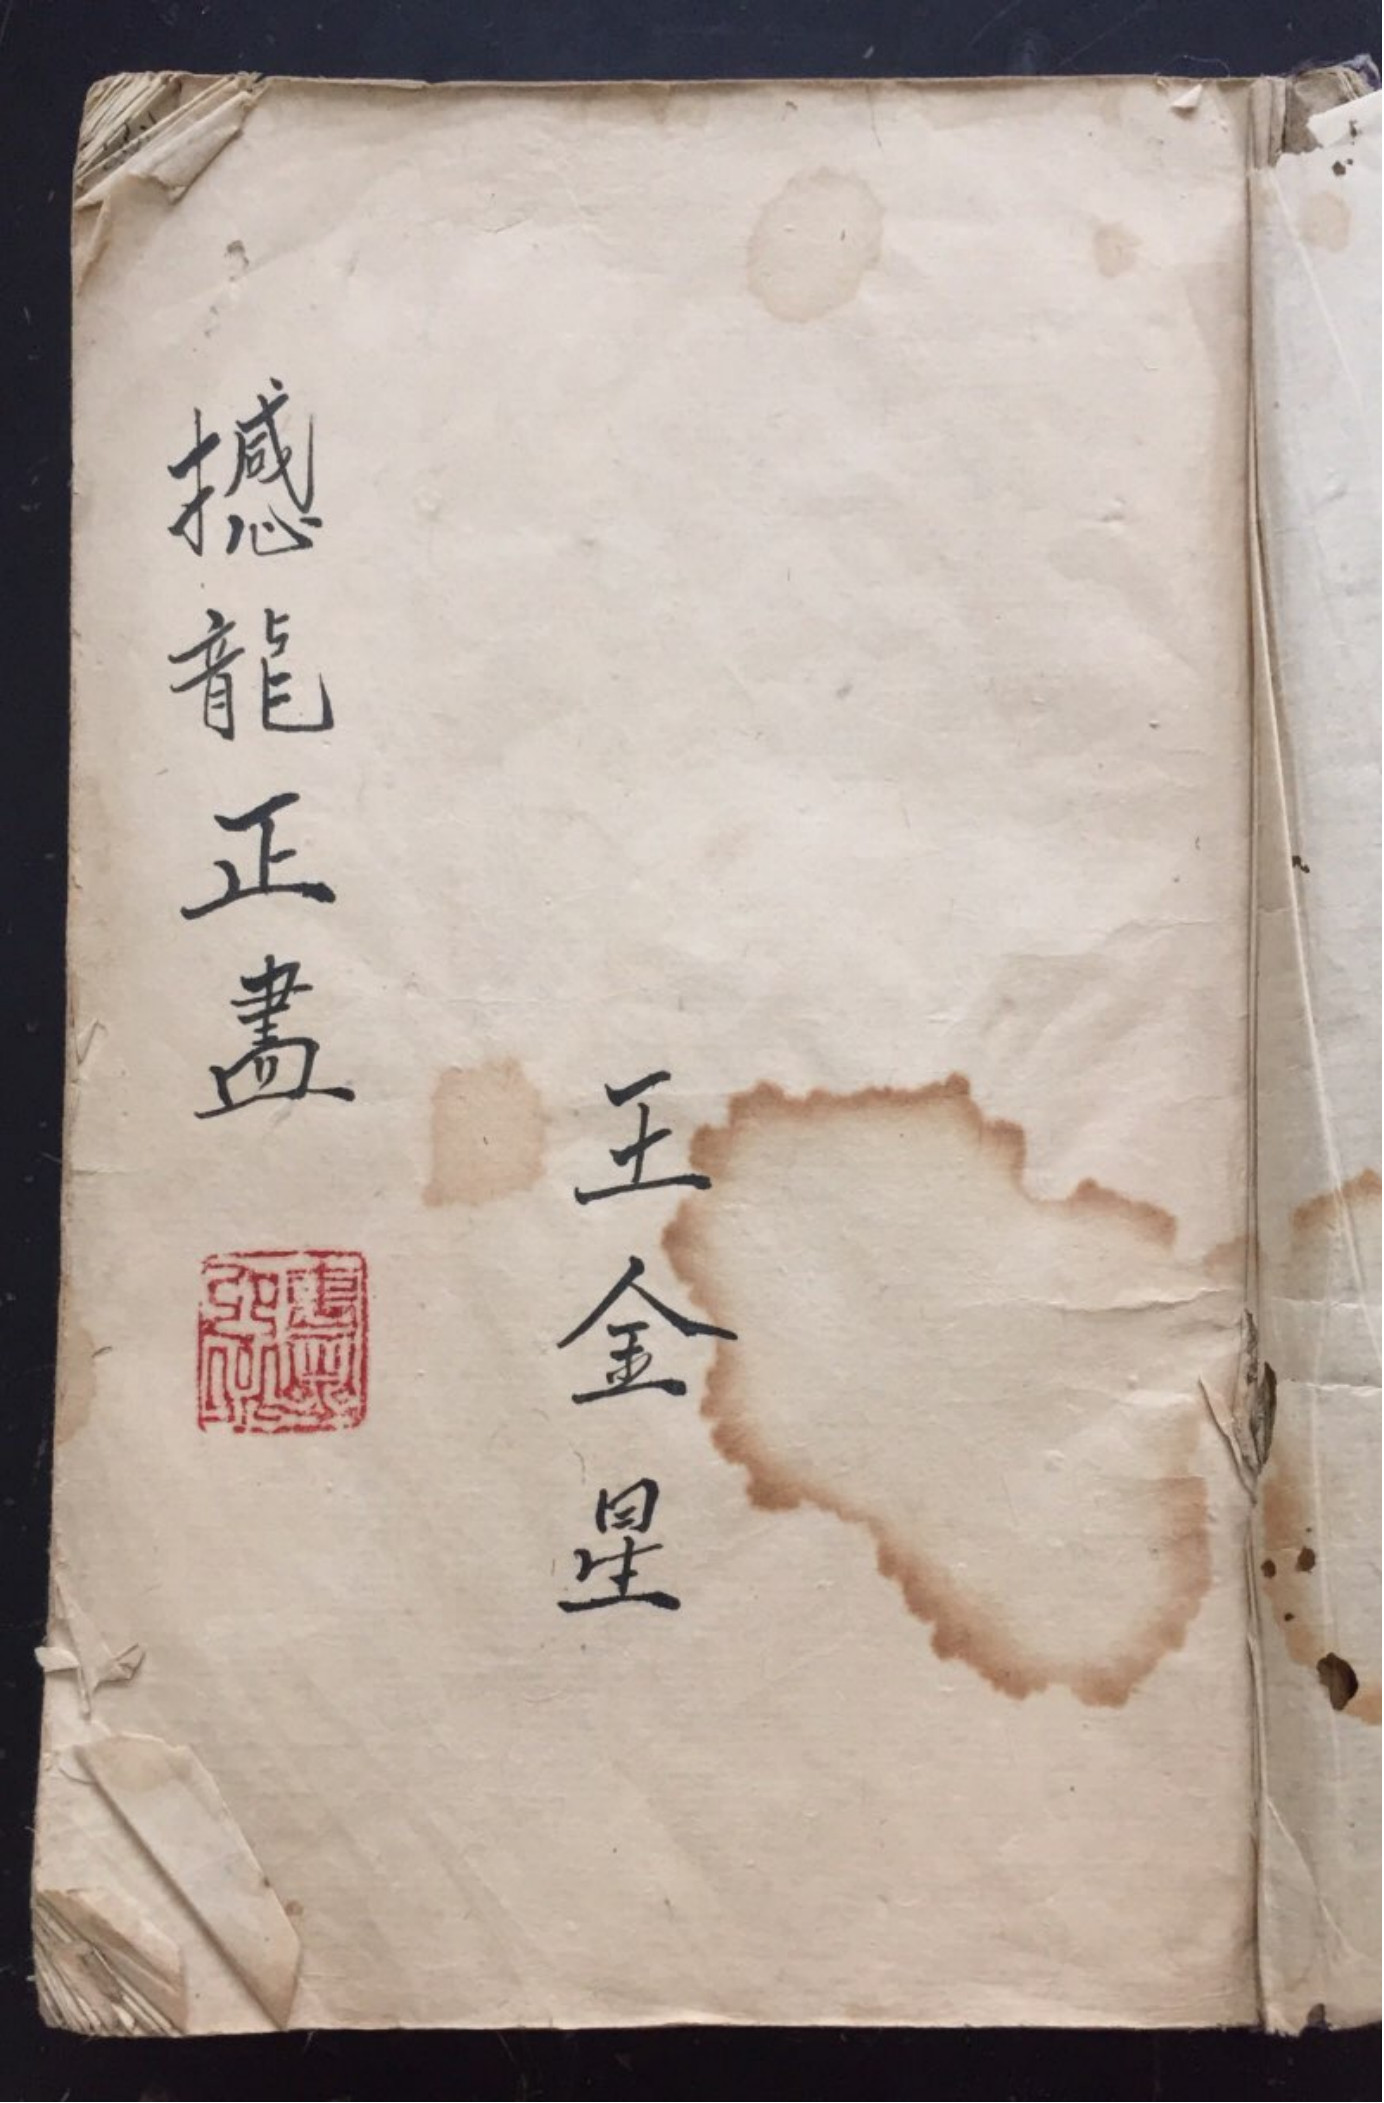 撼龍正畫
王金星